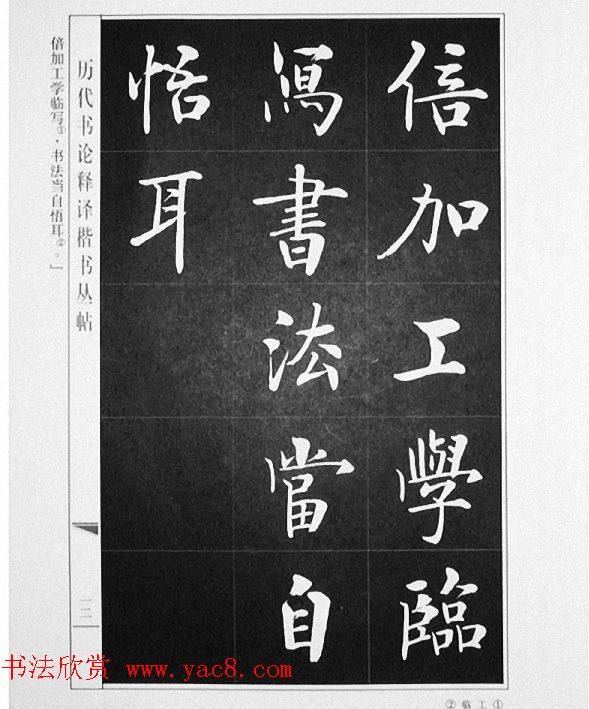 倍加工學臨
寫書法當自
悟耳
历代书论释译楷书丛帖
三
倍加工学临写①·书法当自悟耳②。」
书法欣赏 www.yac8.com
②临工①